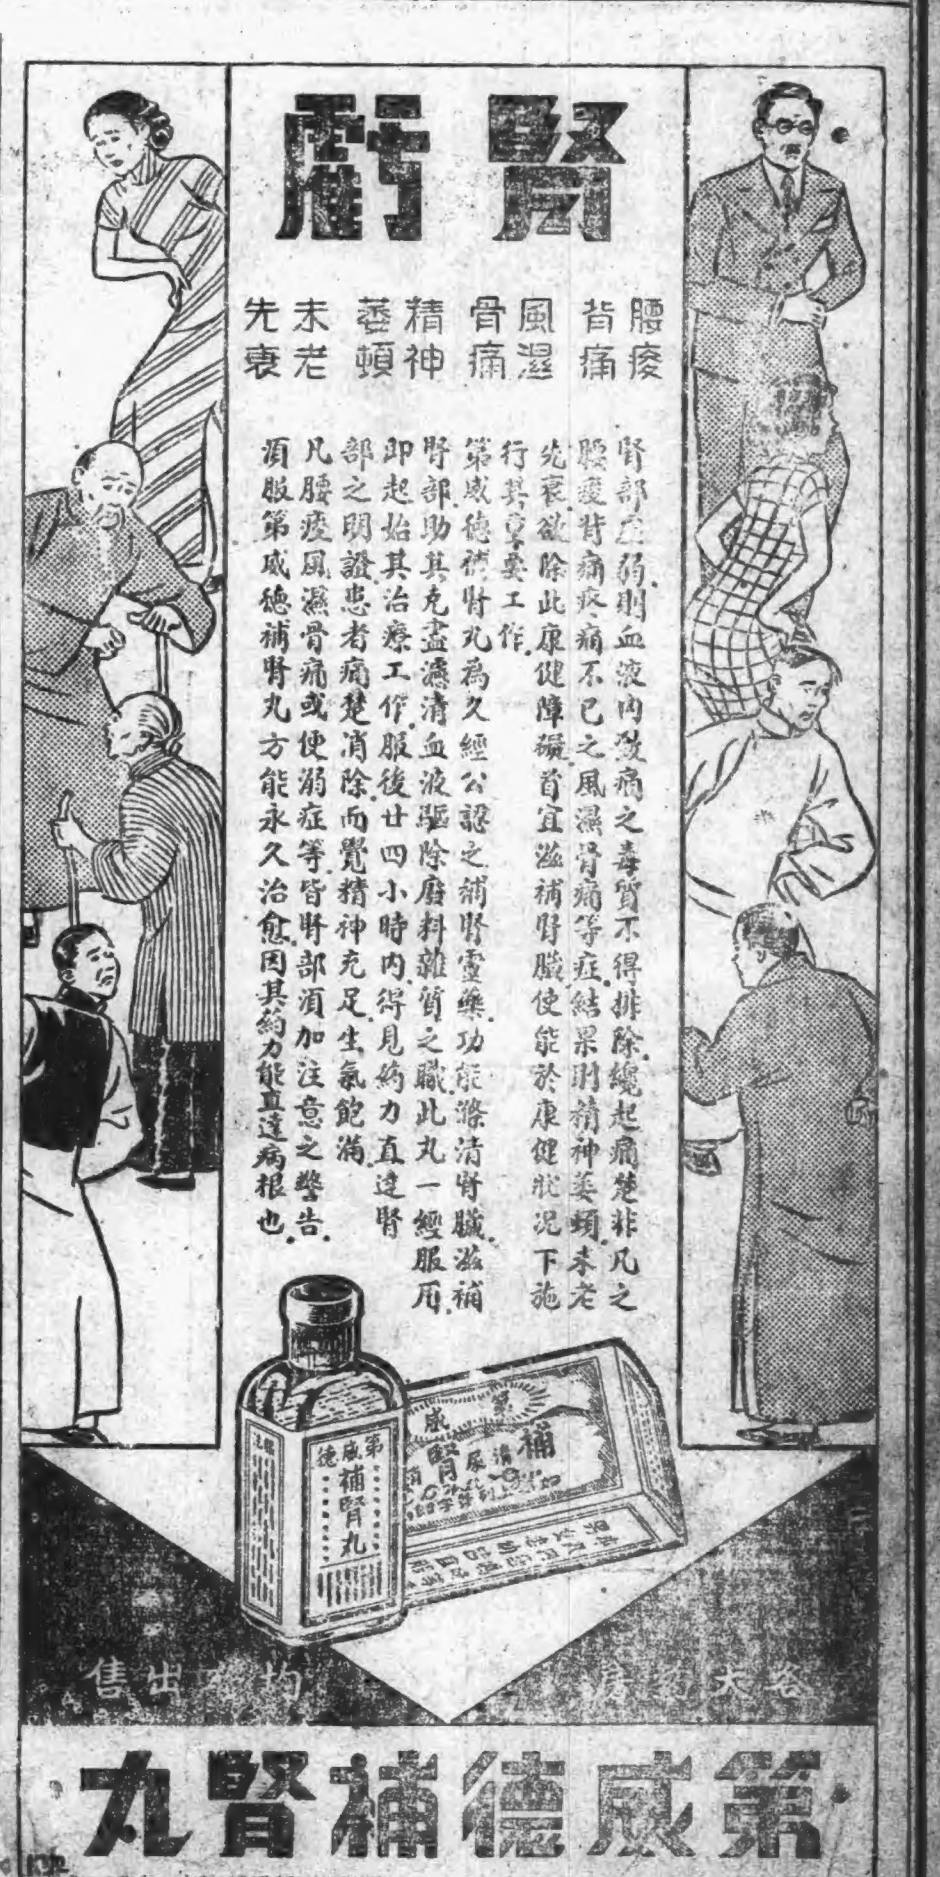 腎虧
腰痠
背痛
風濕
骨痛
精神
萎頓
未老
先衰
腎部虛弱、則血液內發痛之毒質不得排除、纔起痛楚、非凡之
腰痠背痛疼痛不已之風濕骨痛等症、結果則精神萎頓、未老
先衰、欲除此康健障礙、首宜滋補腎臟、使能於康健狀況下施
行其重要工作、
第威德補腎丸為久經公認之補腎靈藥、功能滌清腎臟、滋補
腎部、助其克盡濾清血液驅除廢料雜質之職、此丸一經服用、
即起始其治療工作、服後廿四小時內、得見药力直達腎
部之明證、患者痛楚消除、而覺精神充足、生氣飽滿、
凡腰痠風濕骨痛或便溺症等、皆腎部須加注意之警告、
須服第威德補腎丸方能永久治愈、因其药力能直達病根也、
第威德
補腎丸
補腎
各大药房
均有出售
第威德補腎丸